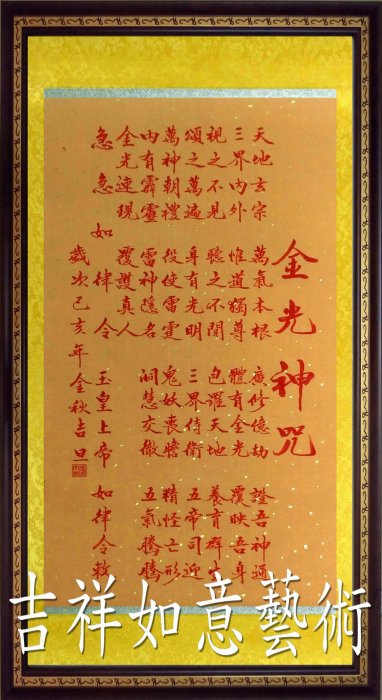 金光神咒
天地玄宗 萬氣本根 廣修億劫 證吾神通
三界內外 惟道獨尊 體有金光 覆映吾身
視之不見 聽之不聞 包羅天地 養育群生
頌之萬遍 身有光明 三界侍衛 五帝司迎
萬神朝禮 役使雷霆 鬼妖喪膽 精怪亡形
內有霹靂 雷神隱名 洞慧交徹 五氣騰騰
金光速現 覆護真人
急急如律令 玉皇上帝 如律令敕
歲次己亥年金秋吉日
吉祥如意藝術